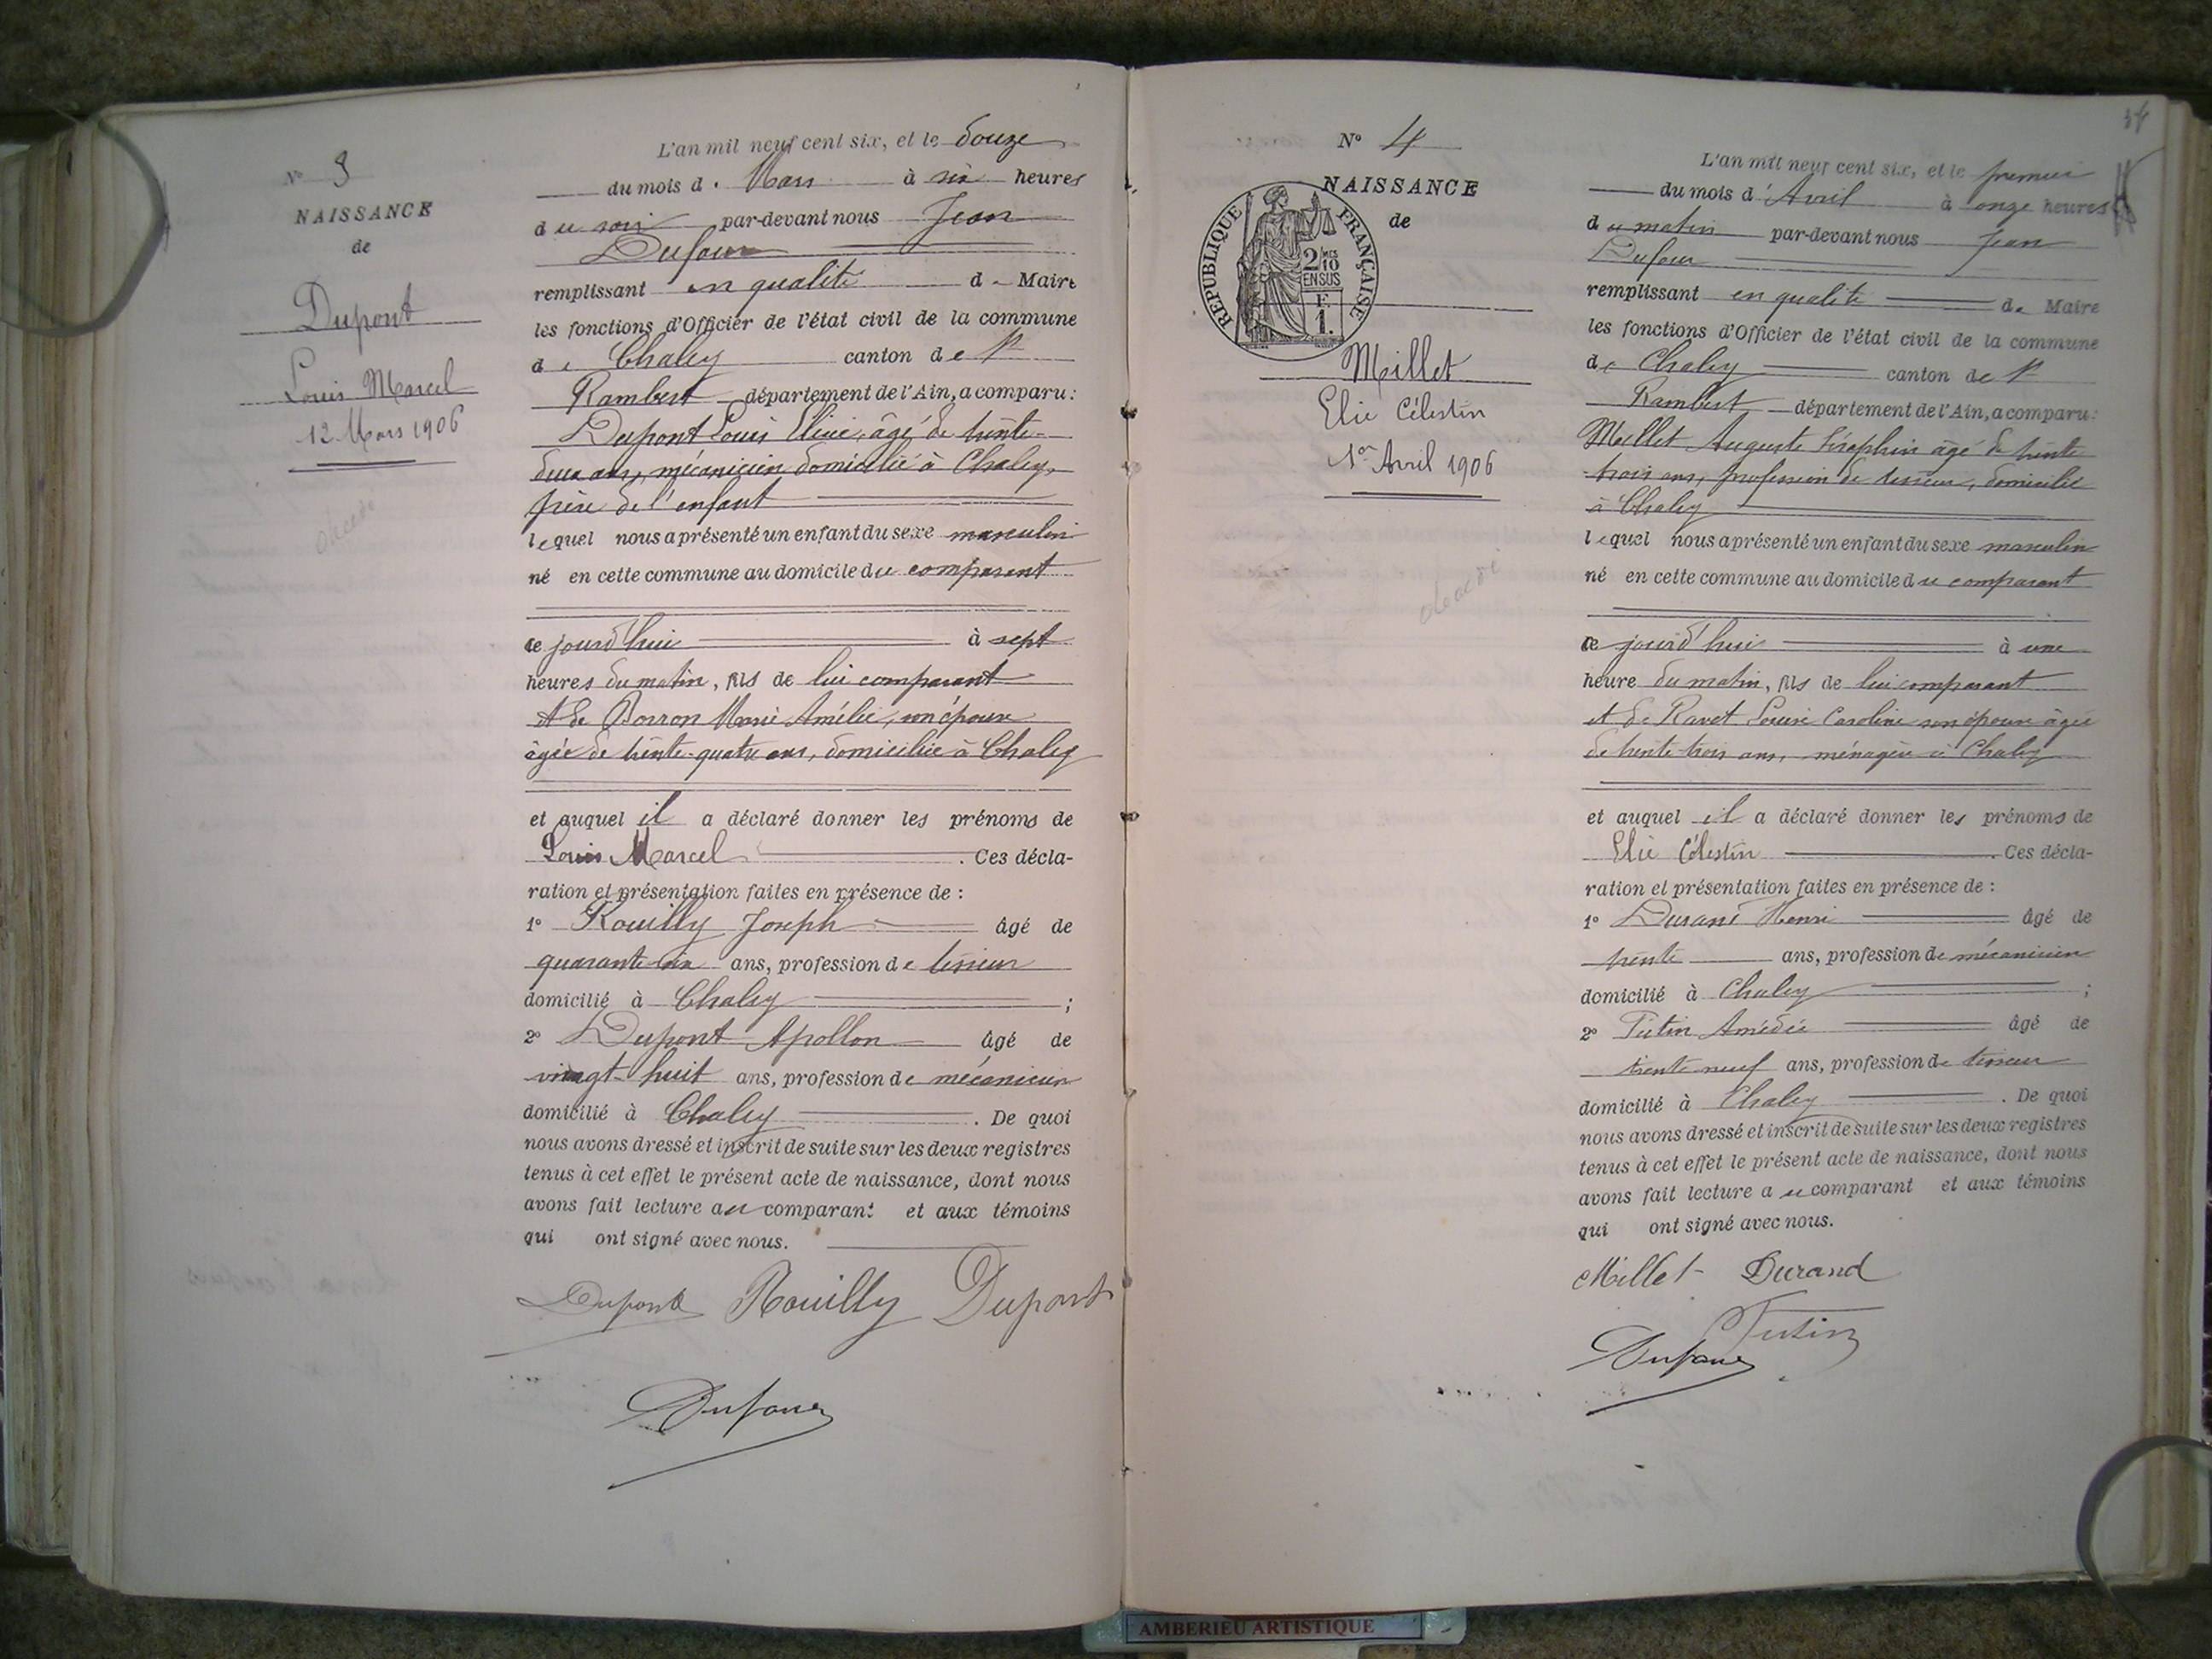 N° 3
NAISSANCE
de
Dupont
Louis Marcel
12 Mars 1906
décédé
L'an mil neuf cent six, et le douze
du mois de Mars à six heures
du soir par-devant nous Jean
Dufour
remplissant en qualité de Maire
les fonctions d'Officier de l'état civil de la commune
de Chaley canton de St
Rambert département de l'Ain, a comparu:
Dupont Louis âgé de trente-
deux ans, mécanicien domicilié à Chaley,
père de l'enfant
lequel nous a présenté un enfant du sexe masculin
né en cette commune au domicile du comparant
ce jourd'hui à sept
heures du matin, fils de lui comparant
et de Borron Marie Amélie, son épouse
âgée de trente-quatre ans, domiciliée à Chaley
et auquel il a déclaré donner les prénoms de
Louis Marcel. Ces décla-
ration et présentation faites en présence de :
1° Rouilly Joseph âgé de
quarante-six ans, profession de tisseur
domicilié à Chaley ;
2° Dupont Apollon âgé de
vingt-huit ans, profession de mécanicien
domicilié à Chaley. De quoi
nous avons dressé et inscrit de suite sur les deux registres
tenus à cet effet le présent acte de naissance, dont nous
avons fait lecture au comparant et aux témoins
qui ont signé avec nous.
Dupont Rouilly Dupont
Dufour
N° 4
NAISSANCE
de
RÉPUBLIQUE FRANÇAISE
2/10
EN SUS
F.
1.
Millet
Elie Célestin
1er Avril 1906
décédé
L'an mil neuf cent six, et le premier
du mois d'Avril à onze heures
du matin par-devant nous Jean
Dufour
remplissant en qualité de Maire
les fonctions d'Officier de l'état civil de la commune
de Chaley canton de St
Rambert département de l'Ain, a comparu:
Millet Auguste Séraphin âgé de trente-
trois ans, profession de tisseur, domicilié
à Chaley
lequel nous a présenté un enfant du sexe masculin
né en cette commune au domicile du comparant
ce jourd'hui à une
heure du matin, fils de lui comparant
et de Ravet Louise Caroline son épouse âgée
de trente-trois ans, ménagère à Chaley
et auquel il a déclaré donner les prénoms de
Elie Célestin. Ces décla-
ration et présentation faites en présence de :
1° Durand Henri âgé de
trente ans, profession de mécanicien
domicilié à Chaley ;
2° Tutin Amédée âgé de
trente-neuf ans, profession de tisseur
domicilié à Chaley. De quoi
nous avons dressé et inscrit de suite sur les deux registres
tenus à cet effet le présent acte de naissance, dont nous
avons fait lecture au comparant et aux témoins
qui ont signé avec nous.
Millet Durand
Tutin
Dufour
AMBERIEU ARTISTIQUE